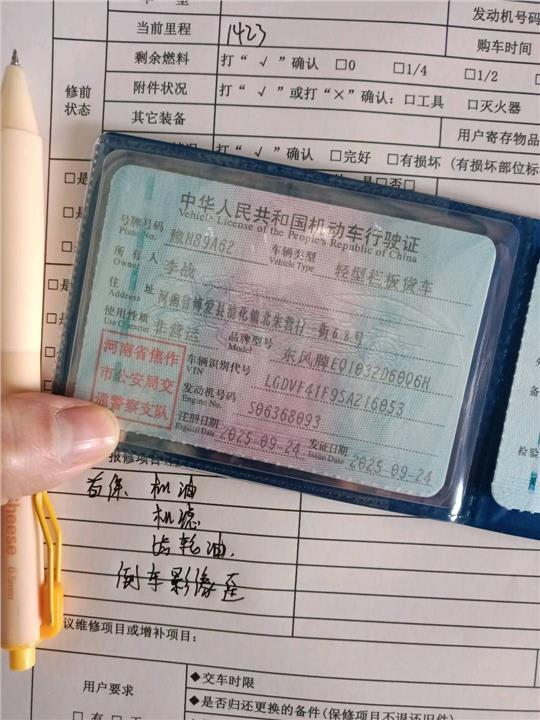 发动机号码
当前里程 1423 购车时间
剩余燃料 打“√”确认 □0 □1/4 □1/2
修前状态
附件状况 打“√”或打“×”确认：□工具 □灭火器
其它装备 用户寄存物品
打“√”确认 □完好 □有损坏（有损坏部位标
中华人民共和国机动车行驶证
Vehicle License of the People's Republic of China
号牌号码 Plate No. 豫H89A62 车辆类型 Vehicle Type 轻型栏板货车
所有人 Owner 李战
住址 Address 河南省博爱县清化镇北朱营村二街68号
使用性质 Use Character 非营运 品牌型号 Model 东风牌EQ1032D60Q6H
河南省焦作
市公安局交
通警察支队
车辆识别代号 VIN LGDVF41F9SA216053
发动机号码 Engine No. S06368093
注册日期 Register Date 2025-09-24 发证日期 Issue Date 2025-09-24
检验
报修项目
首保 机油
机滤
齿轮油
倒车影像歪
议维修项目或增补项目：
用户要求
◆交车时限
◆是否归还更换的备件(保修项目不退还旧件)
Cheese 0.5mm